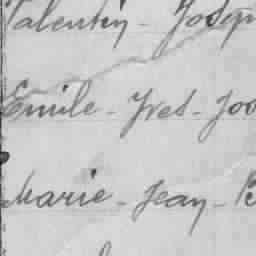 Valentin - Josep
Emile - Yves - Jos
Marie - Jean - B